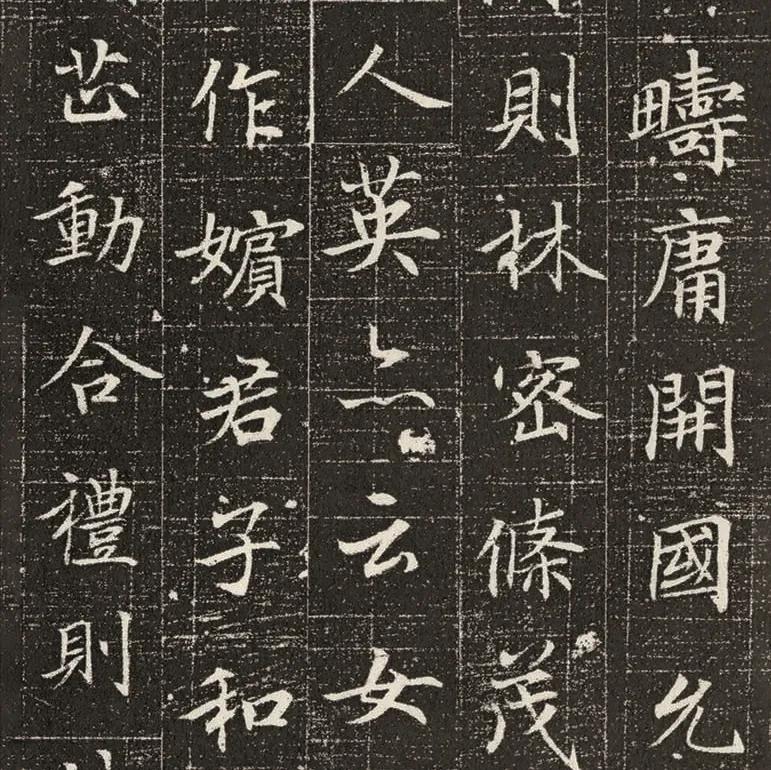 疇庸開國允
則林密條茂
人英亦云女
作嬪君子和
芷動合禮則